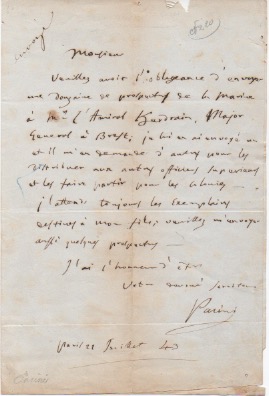 envoyé
Monsieur
Veuillez avoir l'obligeance d'envoyer
une douzaine de prospectus de la Marine
à Mr l'Amiral Major
Général à Brest, je lui en ai envoyé un
et il m'en demande d'autres pour les
distribuer aux autres officiers supérieurs
et les faire partir pour les colonies.
j'attends toujours les exemplaires
destinés à mon fils; veuillez m'envoyer
aussi quelques prospectus
J'ai l'honneur d'être
Votre serviteur
Paris 21 Juillet